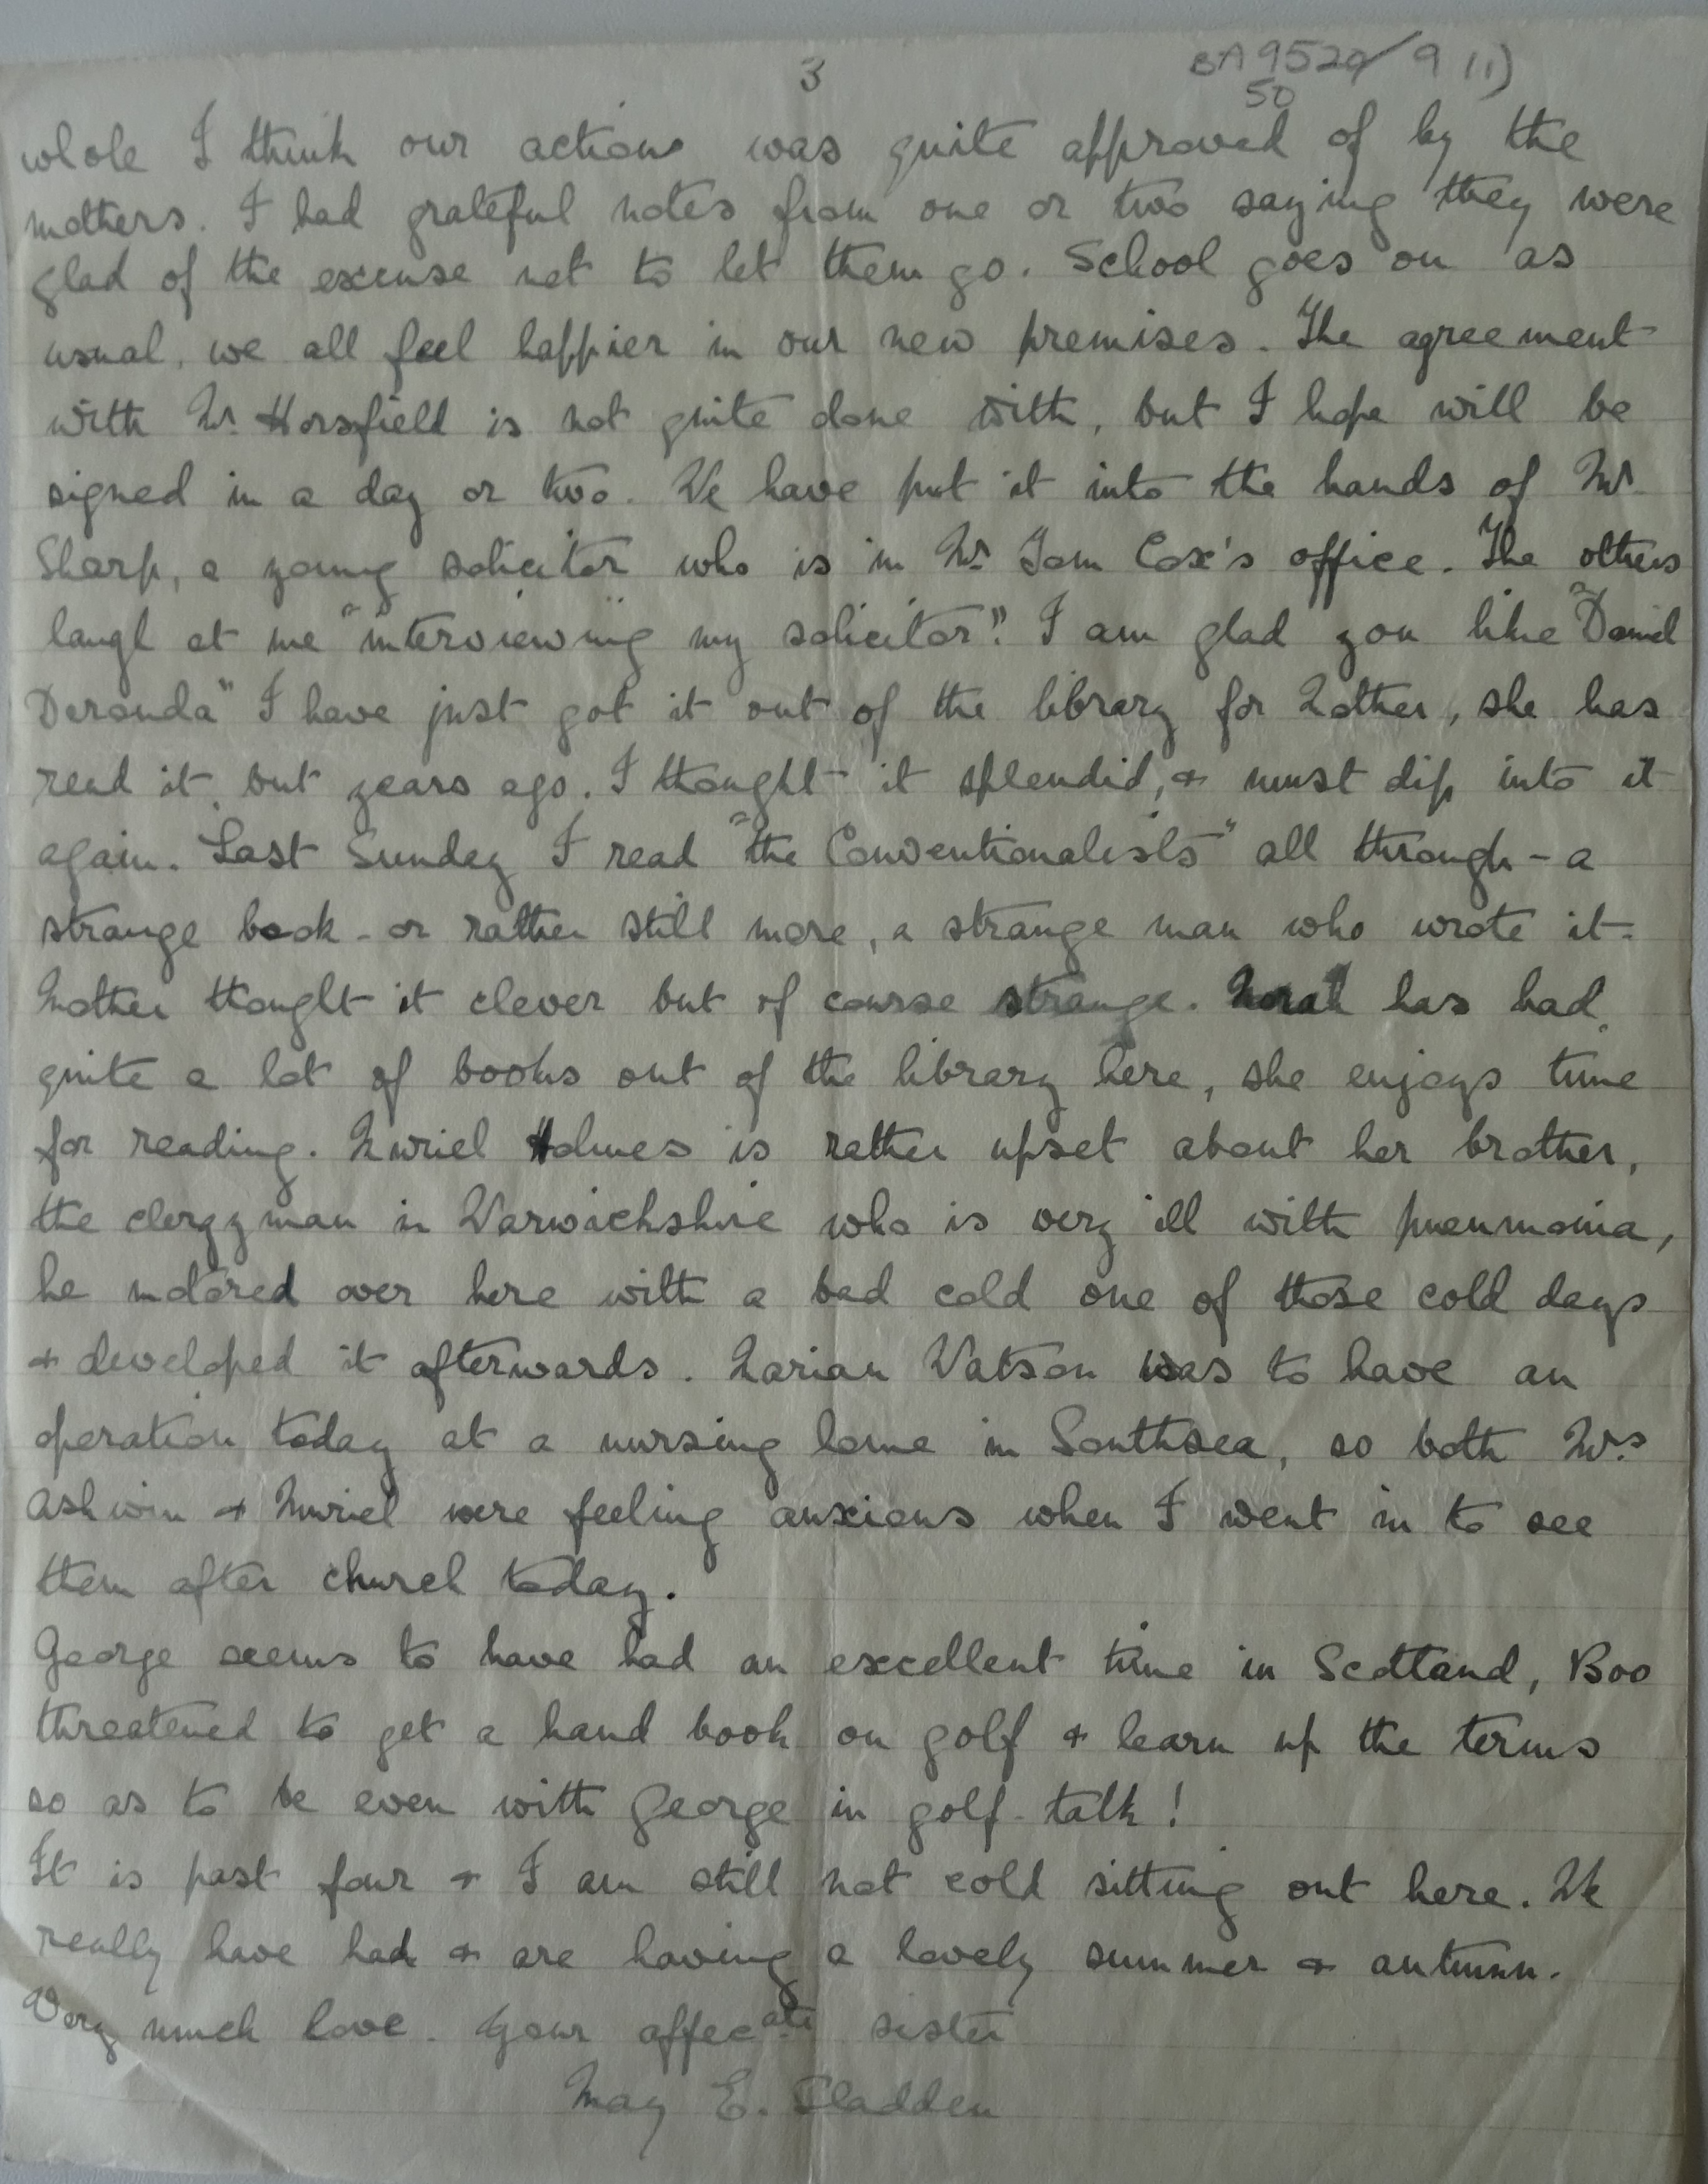 3
BA 9520/9 (1)
50
whole I think our actions was quite approved of by the
mothers. I had grateful notes from one or two saying they were
glad of the excuse not to let them go. School goes on as
usual, we all feel happier in our new premises. The agreement
with Mr. Horsfield is not quite done with, but I hope will be
signed in a day or two. We have put it into the hands of Mr.
Sharp, a young solicitor who is in Mr. Tom Cox's office. The others
laugh at me "interviewing my solicitor". I am glad you like "Daniel
Deronda" I have just got it out of the library for Mother, she has
read it, but years ago. I thought it splendid, & must dip into it
again. Last Sunday I read "the Conventionalists" all through - a
strange book - or rather still more, a strange man who wrote it.
Mother thought it clever but of course strange. Norah has had
quite a lot of books out of the library here, she enjoys time
for reading. Muriel Holmes is rather upset about her brother,
the clergyman in Warwickshire who is very ill with pneumonia,
he motored over here with a bad cold one of those cold days
& developed it afterwards. Marian Watson was to have an
operation today at a nursing home in Southsea, so both Mrs.
Ashwin & Muriel were feeling anxious when I went in to see
them after church today.
George seems to have had an excellent time in Scotland, Boo
threatened to get a hand book on golf & learn up the terms
so as to be even with George in golf-talk!
It is past four & I am still not cold sitting out here. We
really have had & are having a lovely summer & autumn.
Very much love. Your affecate sister
May E. Sladden